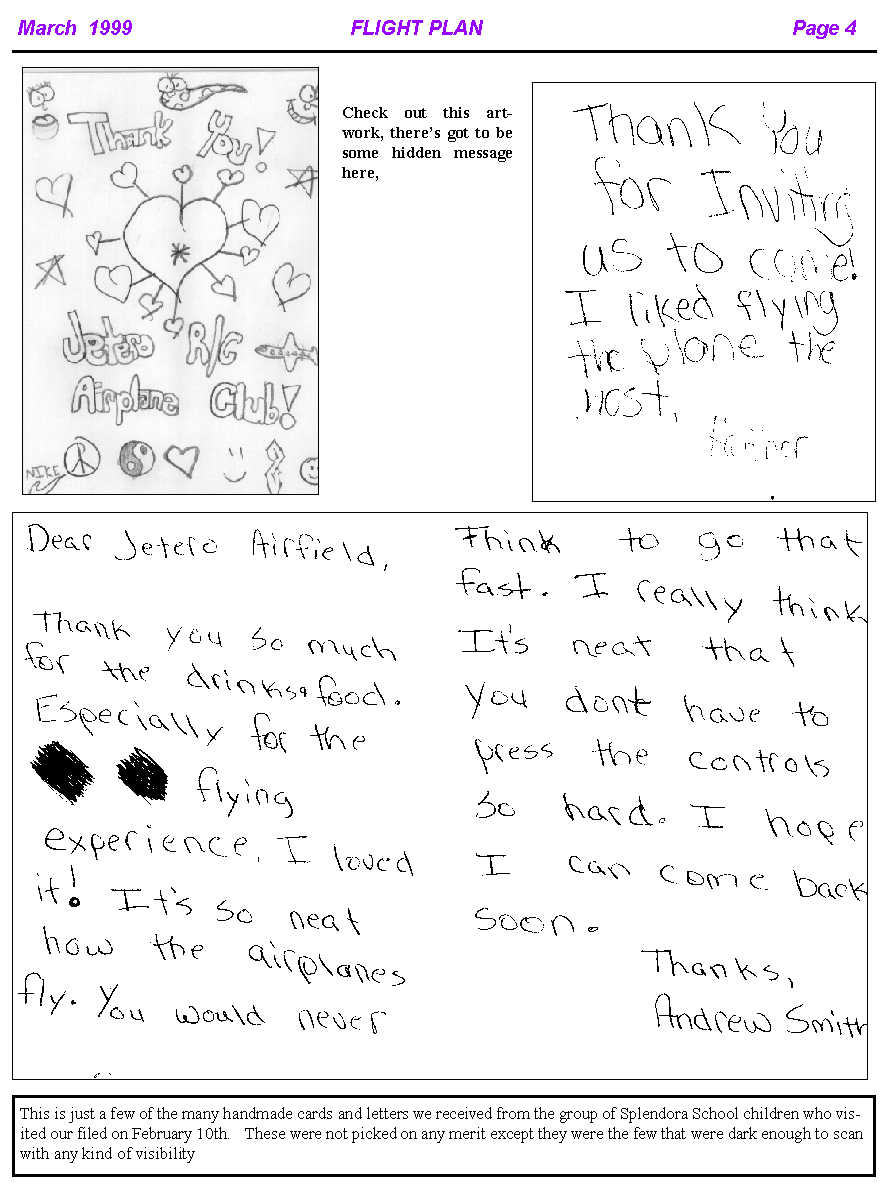 March 1999 FLIGHT PLAN Page 4
Thank You!
Jetero R/C
Airplane Club!
NIKE
Check out this art-
work, there's got to be
some hidden message
here,
Thank You
for Inviting
us to come!
I liked flying
the plane the
most.
Dear Jetero Airfield,
Thank you so much
for the drinks & food.
Especially for the
flying
experience. I loved
it! It's so neat
how the airplanes
fly. You would never
Think to go that
fast. I really think
It's neat that
you dont have to
press the controls
so hard. I hope
I can come back
soon.
Thanks,
Andrew Smith
This is just a few of the many handmade cards and letters we received from the group of Splendora School children who vis-
ited our filed on February 10th. These were not picked on any merit except they were the few that were dark enough to scan
with any kind of visibility